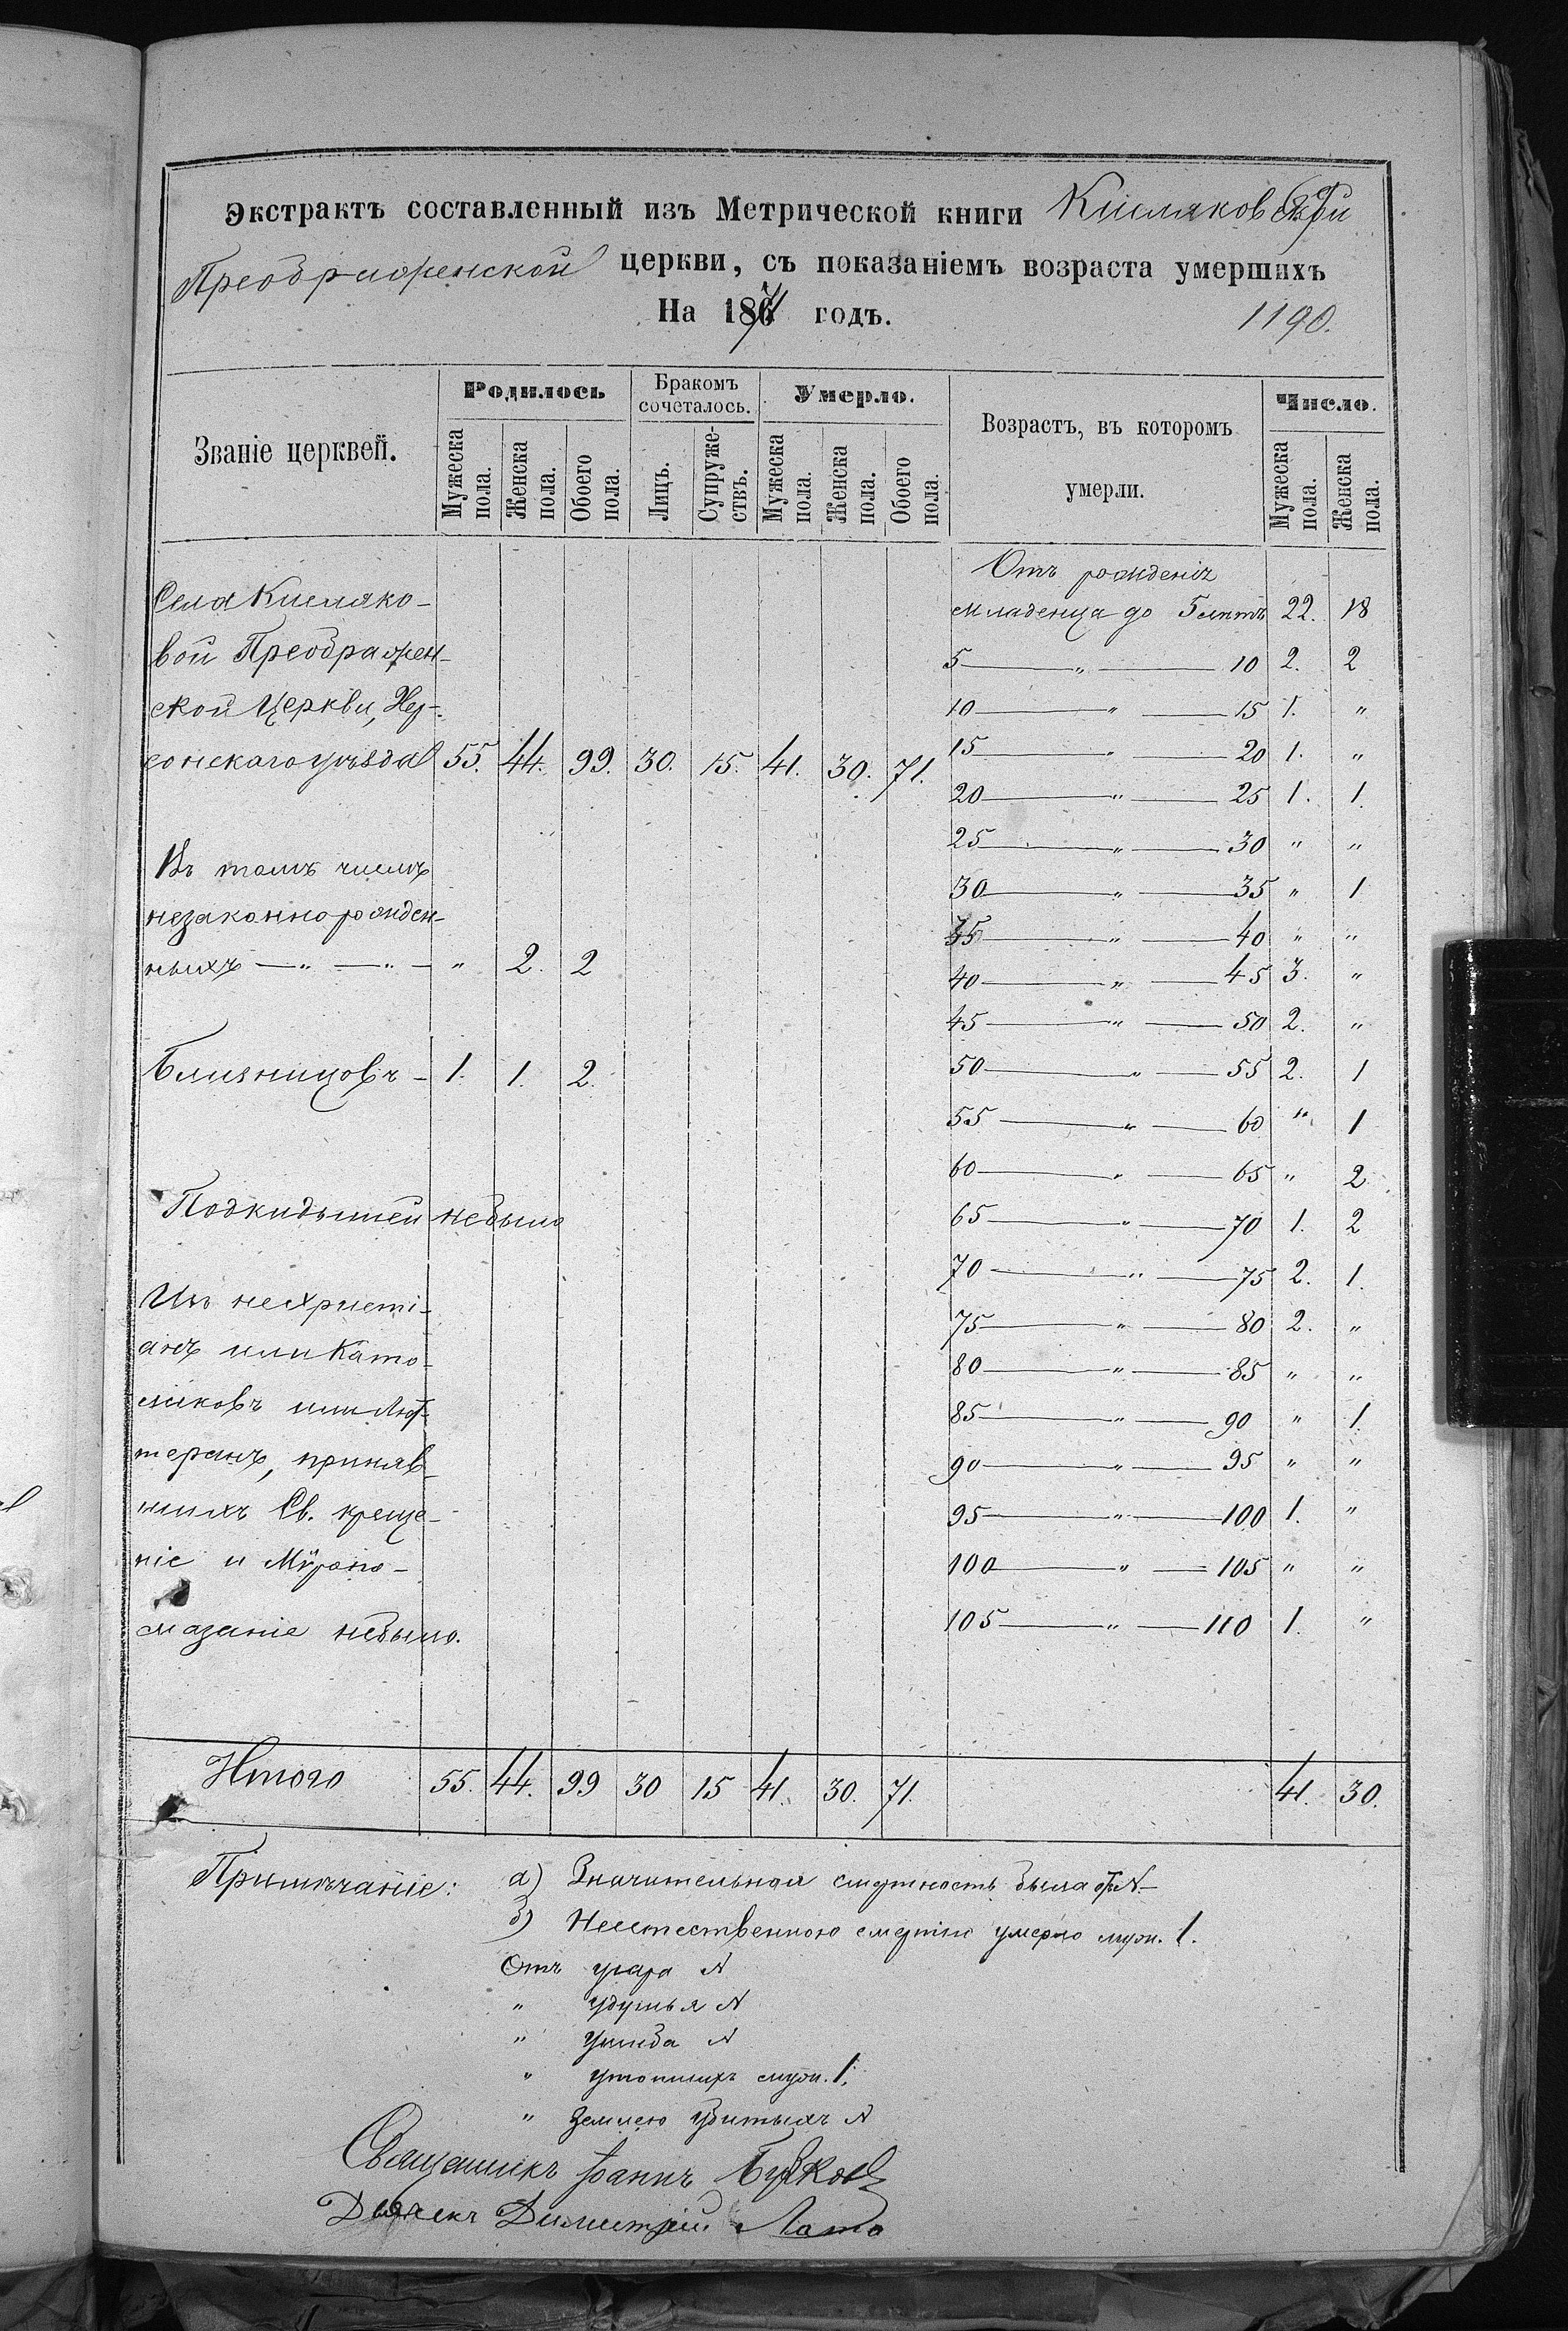 Экстрактъ составленный изъ Метрической книги Кисляковской
Преображенской церкви, съ показаніемъ возраста умершихъ
На 1871 годъ. 1190.
Званіе церквей. Родилось Бракомъ сочеталось. Умерло. Возрастъ, въ которомъ умерли. Число.
Мужеска пола. Женска пола. Обоего пола. Лицъ. Супружествъ. Мужеска пола. Женска пола. Обоего пола. Мужеска пола. Женска пола.
Села Кисляко-
вой Преображен-
ской Церкви, Хер-
сонскаго уѣзда 55. 44. 99. 30. 15. 41. 30. 71.
Въ томъ числѣ
незаконнорожден-
ныхъ — „ — „ — „ 2. 2
Близнецовъ - 1. 1. 2.
Подкидышей небыло
Изъ нехристі-
анъ или Като-
ликовъ или Лют-
теранъ, приняв-
шихъ Св. креще-
ніе и Мѵропо-
мазаніе небыло.
Отъ рожденія
младенца до 5 лѣтъ 22. 18
5 — „ — 10 2. 2
10 — „ — 15 1. „
15 — „ — 20 1. „
20 — „ — 25 1. 1.
25 — „ — 30 „ „
30 — „ — 35 „ 1
35 — „ — 40 „ „
40 — „ — 45 3. „
45 — „ — 50 2. „
50 — „ — 55 2. 1
55 — „ — 60 „ 1
60 — „ — 65 „ 2
65 — „ — 70 1. 2
70 — „ — 75 2. 1.
75 — „ — 80 2. „
80 — „ — 85 „ „
85 — „ — 90 „ 1.
90 — „ — 95 „ „
95 — „ — 100 1. „
100 — „ — 105 „ „
105 — „ — 110 1. „
Итого 55. 44. 99 30 15 41. 30. 71. 41. 30.
Примѣчаніе: а) Значительная смертность была
б) Неестественною смертію умерло муж. 1.
Отъ угара
„ удушья
„ ушиба
„ утопшихъ муж. 1.
„ Землею убитыхъ
Священникъ Іоаннъ
Дьячекъ Димитрій Лато